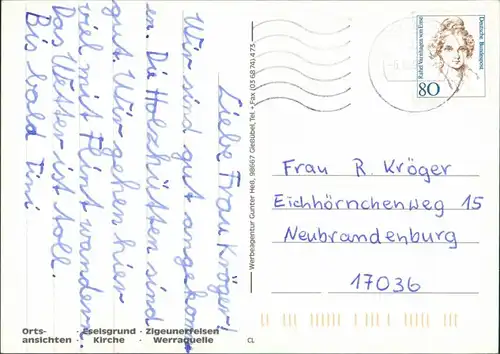 Liebe Frau Kröger!
Wir sind gut angekomm-
en. Die Holzhütten sind
gut. Wir gehen hier
viel mit Flint wandern.
Das Wetter ist toll.
Bis bald Tini
Orts- · Eselsgrund · Zigeunerfelsen
ansichten · Kirche · Werraquelle
CL
Werbeagentur Günter Heil, 98667 Gießübel, Tel. + Fax (03 68 74) 473
Deutsche Bundespost
Rahel Varnhagen von Ense
80
Frau R. Kröger
Eichhörnchenweg 15
Neubrandenburg
17036